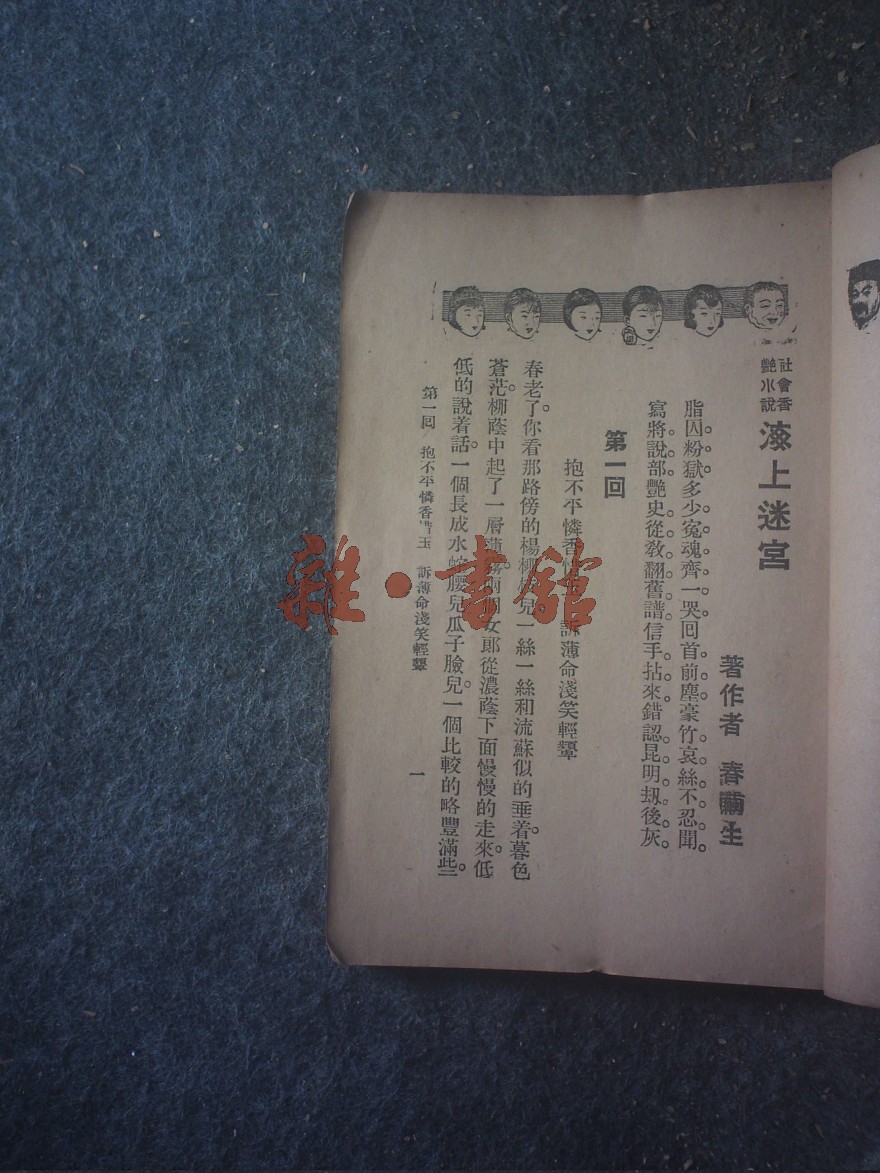 社會香
艷小說
海上迷宮
著作者 春繭生
脂囚粉獄多少寃魂齊一哭回首前塵豪竹哀絲不忍聞。
寫將說部艷史從敎翻舊譜信手拈來錯認昆明刼後灰。
第一回
抱不平憐香惜玉 訴薄命淺笑輕顰
春老了。你看那路傍的楊柳 兒一絲一絲和流蘇似的垂着。暮色
蒼茫。柳蔭中起了一層 霧。兩個女郞從濃蔭下面慢慢的走來。低
低的說着話。一個長成水蛇腰兒瓜子臉兒一個比較的略豐滿些。
第一回 抱不平憐香惜玉 訴薄命淺笑輕顰
一
雜·書館